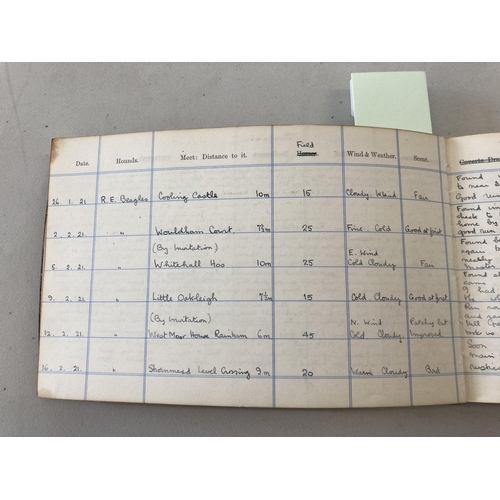 Field
Date. Hounds. Meet: Distance to it. Horses. Wind & Weather. Scent. Coverts Dra
26. 1. 21. R.E. Beagles Cooling Castle 10m 15 Cloudy Wind Fair
2. 2. 21. " Wouldham Court 7½m 25 Fine Cold Good at first
(By Invitation) E. Wind
5. 2. 21. " Whitehall Hoo 10m 25 Cold Cloudy Fair
9. 2. 21. " Little Oakleigh 7½m 15 Cold Cloudy Good at first
(By Invitation) N. Wind Patchy but
12. 2. 21. " West Moor House Rainham 6m 45 Cold Cloudy Improved
16. 2. 21. " Shornmead Level Crossing 9m 20 Warm Cloudy Bad
Found
to near
Good run
Found
check to
home by
good run
Found
again
Found at
I had
Soon
main